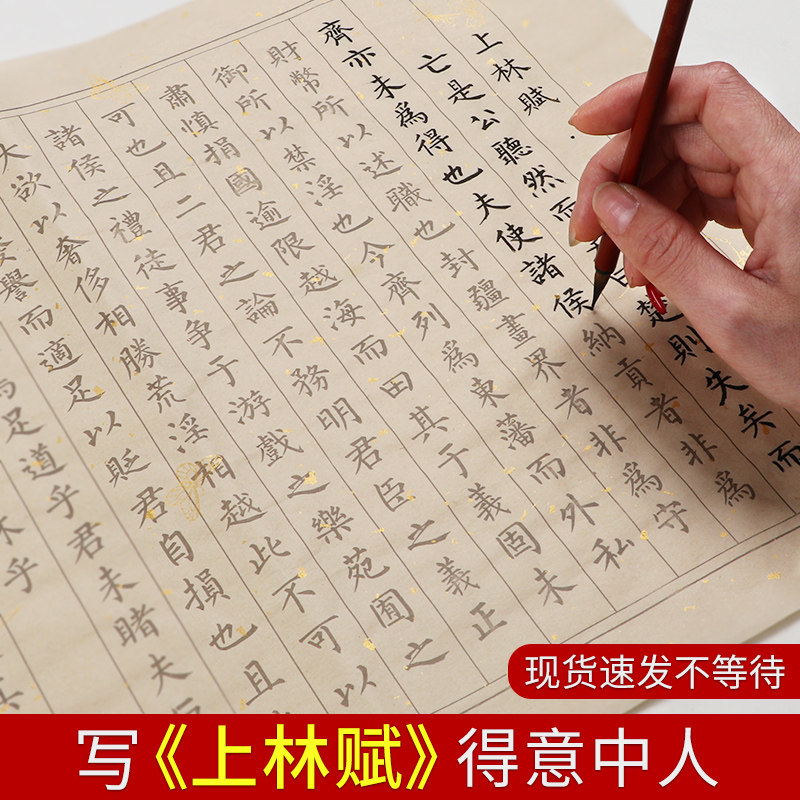 上林賦
亡是公聽然而
楚則失矣而
齊亦未爲得也夫使諸侯納貢者非爲
財幣所以述職也封疆畫界者非爲守
御所以禁淫也今齊列爲東藩而外私
肅慎捐國逾限越海而田其于義固未
可也且二君之論不務明君臣之義正
諸侯之禮徒事争于游戲之樂苑囿之
大欲以奢侈相勝荒淫相越此不可以
譽而適足以貶君自損也且
足道乎君未睹夫
乎
现货速发不等待
写《上林赋》得意中人